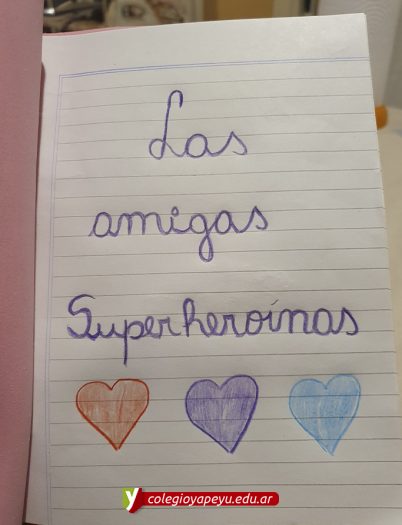 Las
amigas
Superheroínas
y colegioyapeyu.edu.ar